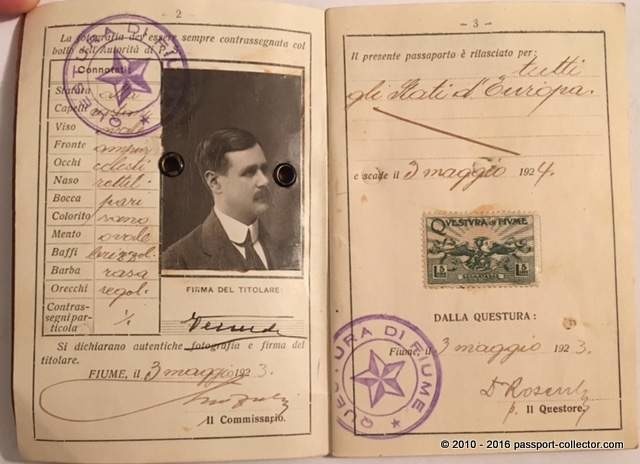 - 2 -
La fotografia dev'essere sempre contrassegnata col
bollo dell'Autorità di P. S.
QUESTURA DI FIUME
Connotati
Statura alta
Capelli
Viso ovale
Fronte
Occhi celesti
Naso rettil.
Bocca pari
Colorito sano
Mento ovale
Baffi
Barba rasa
Orecchi regol.
Contras-
segni par-
ticola
FIRMA DEL TITOLARE:
Si dichiarano autentiche fotografia e firma del
titolare.
FIUME, 3 maggio 1923.
Il Commissario.
- 3 -
Il presente passaporto è rilasciato per: tutti
gli Stati d'Europa.
e scade il 3 maggio 1924.
QUESTURA DI FIUME
L5 L5
DALLA QUESTURA:
Fiume, 3 maggio 1923.
QUESTURA DI FIUME
p. Il Questore
© 2010 - 2016 passport-collector.com